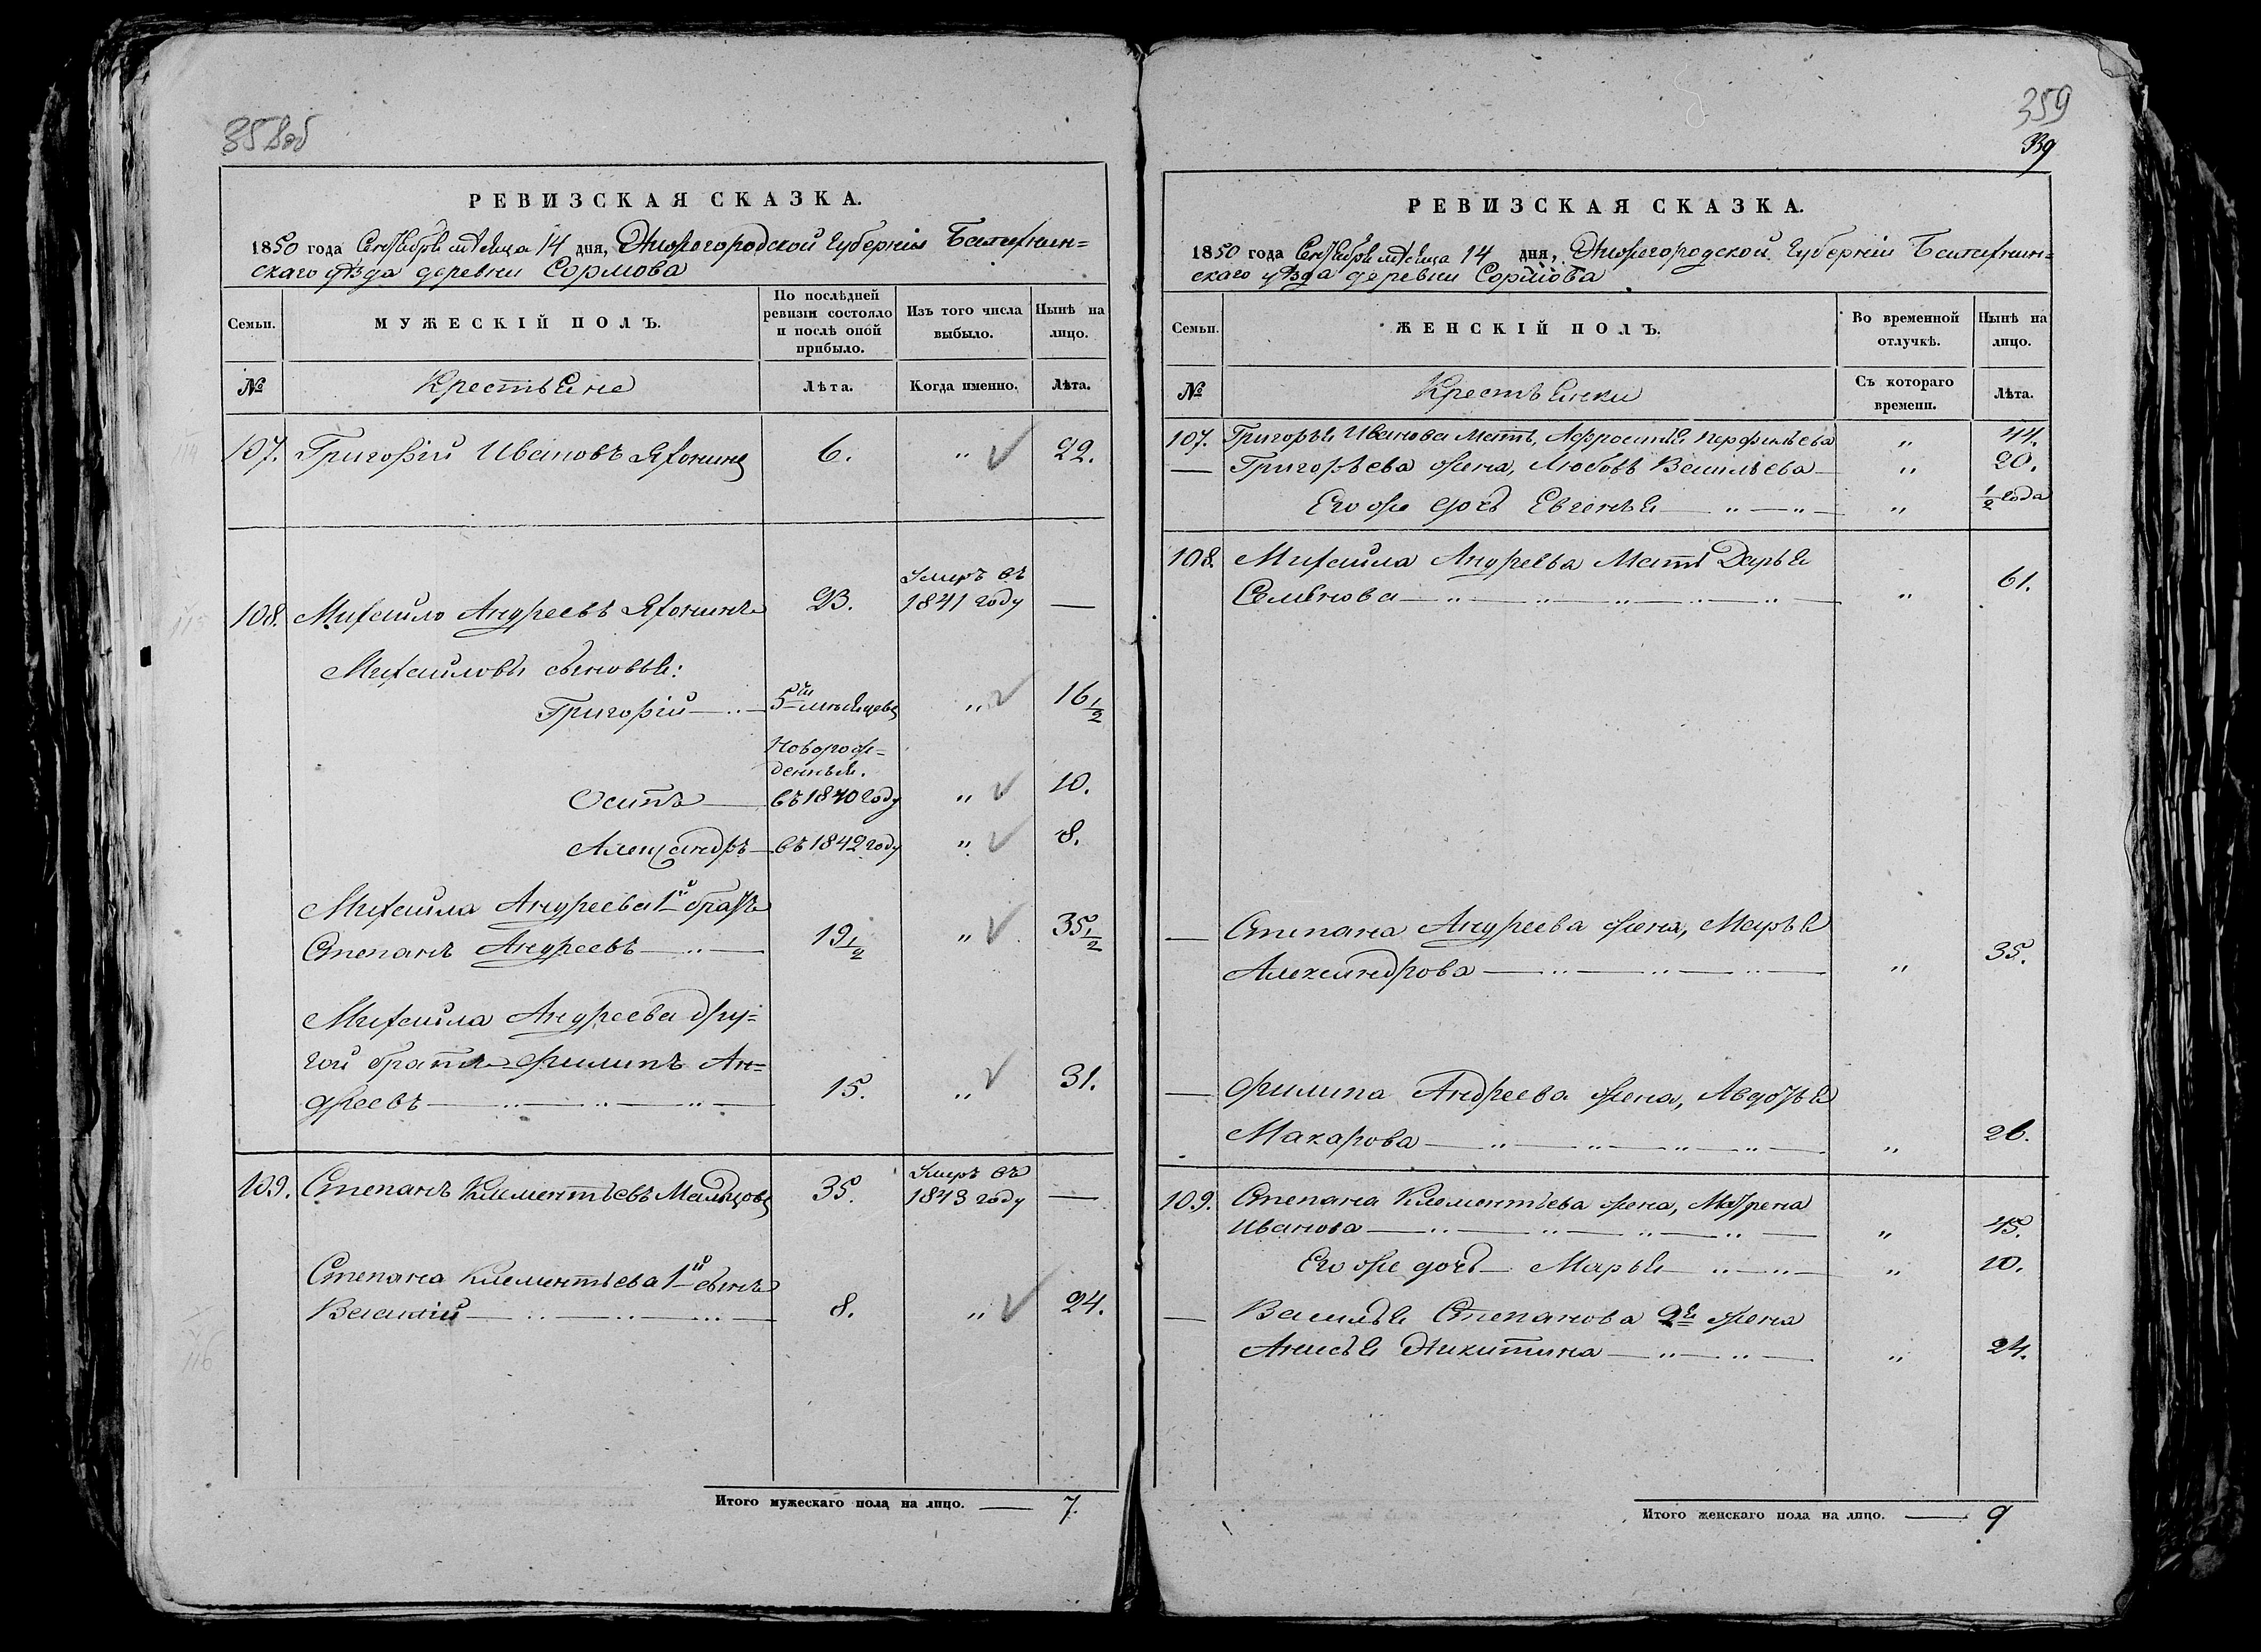 358об
РЕВИЗСКАЯ СКАЗКА.
1850 года Сентября мѣсяца 14 дня, Нижегородской Губерніи Балахнин=
скаго уѣзда деревни Сормова
Семьи.
МУЖЕСКІЙ ПОЛЪ.
По послѣдней ревизіи состояло и послѣ оной прибыло.
Изъ того числа выбыло.
Нынѣ на лицо.
№
Крестьяне
Лѣта.
Когда именно.
Лѣта.
107. Григорій Ивановъ Яхонинъ 6. „ 22.
Умеръ въ
108. Михайло Андреевъ Яхонинъ 23. 1841 году —
Михайловы сыновья:
Григорій — 5ти мѣсяцевъ „ 16 1/2
Новорож=
денные.
Осипъ — въ 1840 году „ 10.
Александръ — въ 1842 году „ 8.
Михайла Андреева 1й братъ
Степанъ Андреевъ — 19 1/2 „ 35 1/2
Михайла Андреева дру=
гой братъ Филипъ Ан=
дреевъ — 15. „ 31.
Умеръ въ
109. Степанъ Клементьевъ Мальцовъ 35. 1843 году —
Степана Клементьева 1й сынъ
Василій — 8. „ 24.
Итого мужескаго пола на лицо. — 7.
359
339
РЕВИЗСКАЯ СКАЗКА.
1850 года Сентября мѣсяца 14 дня, Нижегородской Губерніи Балахнин=
скаго уѣзда деревни Сормова
Семьи.
ЖЕНСКІЙ ПОЛЪ.
Во временной отлучкѣ.
Нынѣ на лицо.
№
Крестьянки
Съ котораго времени.
Лѣта.
107. Григорья Иванова мать, Афросинья Перфильева „ 44.
— Григорьева жена, Любовь Васильева — „ 20.
Его же дочь Евгенья — „ 1/2 года
108. Михайла Андреева Мать Дарья
Семенова — „ 61.
— Степана Андреева жена, Марья
Александрова — „ 35.
— Филипа Андреева жена, Авдотья
Макарова — „ 26.
109. Степана Клементьева жена, Матрена
Иванова — „ 45.
Его же дочь — Марья — „ 10.
— Василья Степанова 2я жена
Анисья Никитина — „ 24.
Итого женскаго пола на лицо. — 9